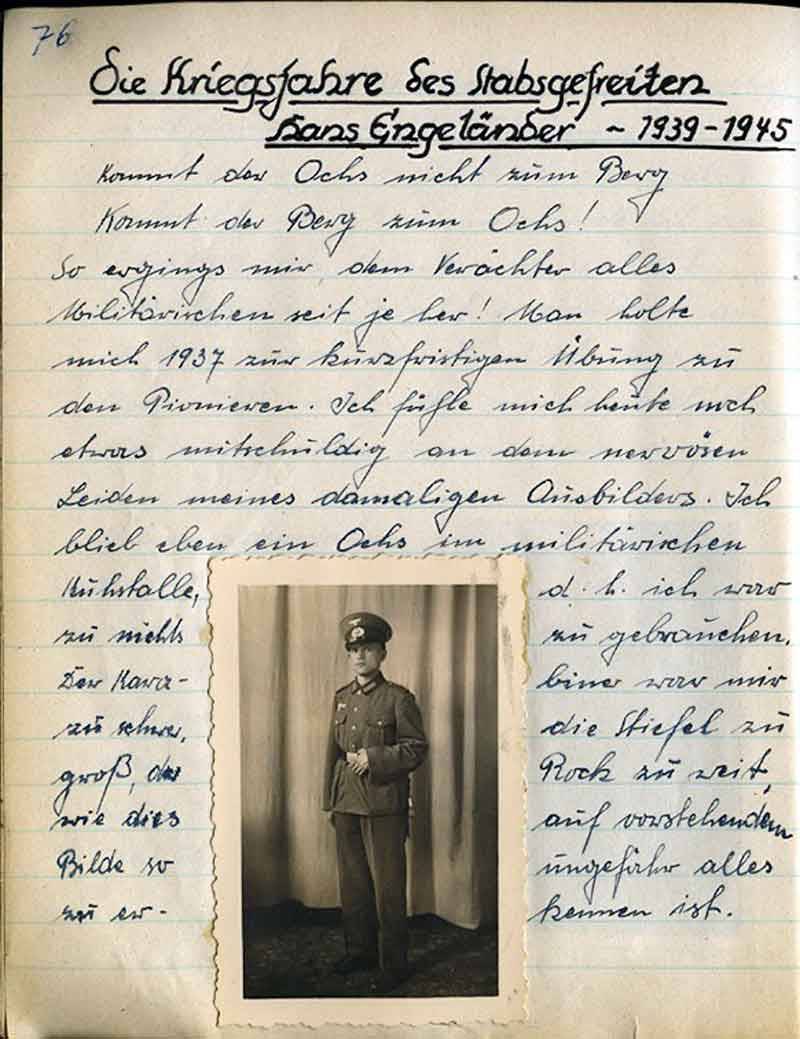 76
Die Kriegsjahre des Stabsgefreiten
Hans Engeländer ~ 1939-1945
Kommt der Ochs nicht zum Berg
Kommt der Berg zum Ochs!
So ergings mir, dem Verächter alles
Militärischen seit je her! Man holte
mich 1937 zur kurzfristigen Übung zu
den Pionieren. Ich fühle mich heute noch
etwas mitschuldig an dem nervösen
Leiden meines damaligen Ausbilders. Ich
blieb eben ein Ochs im militärischen
Kuhstalle, d. h. ich war
zu nichts zu gebrauchen.
Der Kara- biner war mir
zu schwer, die Stiefel zu
groß, der Rock zu weit,
wie dies auf vorstehendem
Bilde so ungefähr alles
zu er- kennen ist.